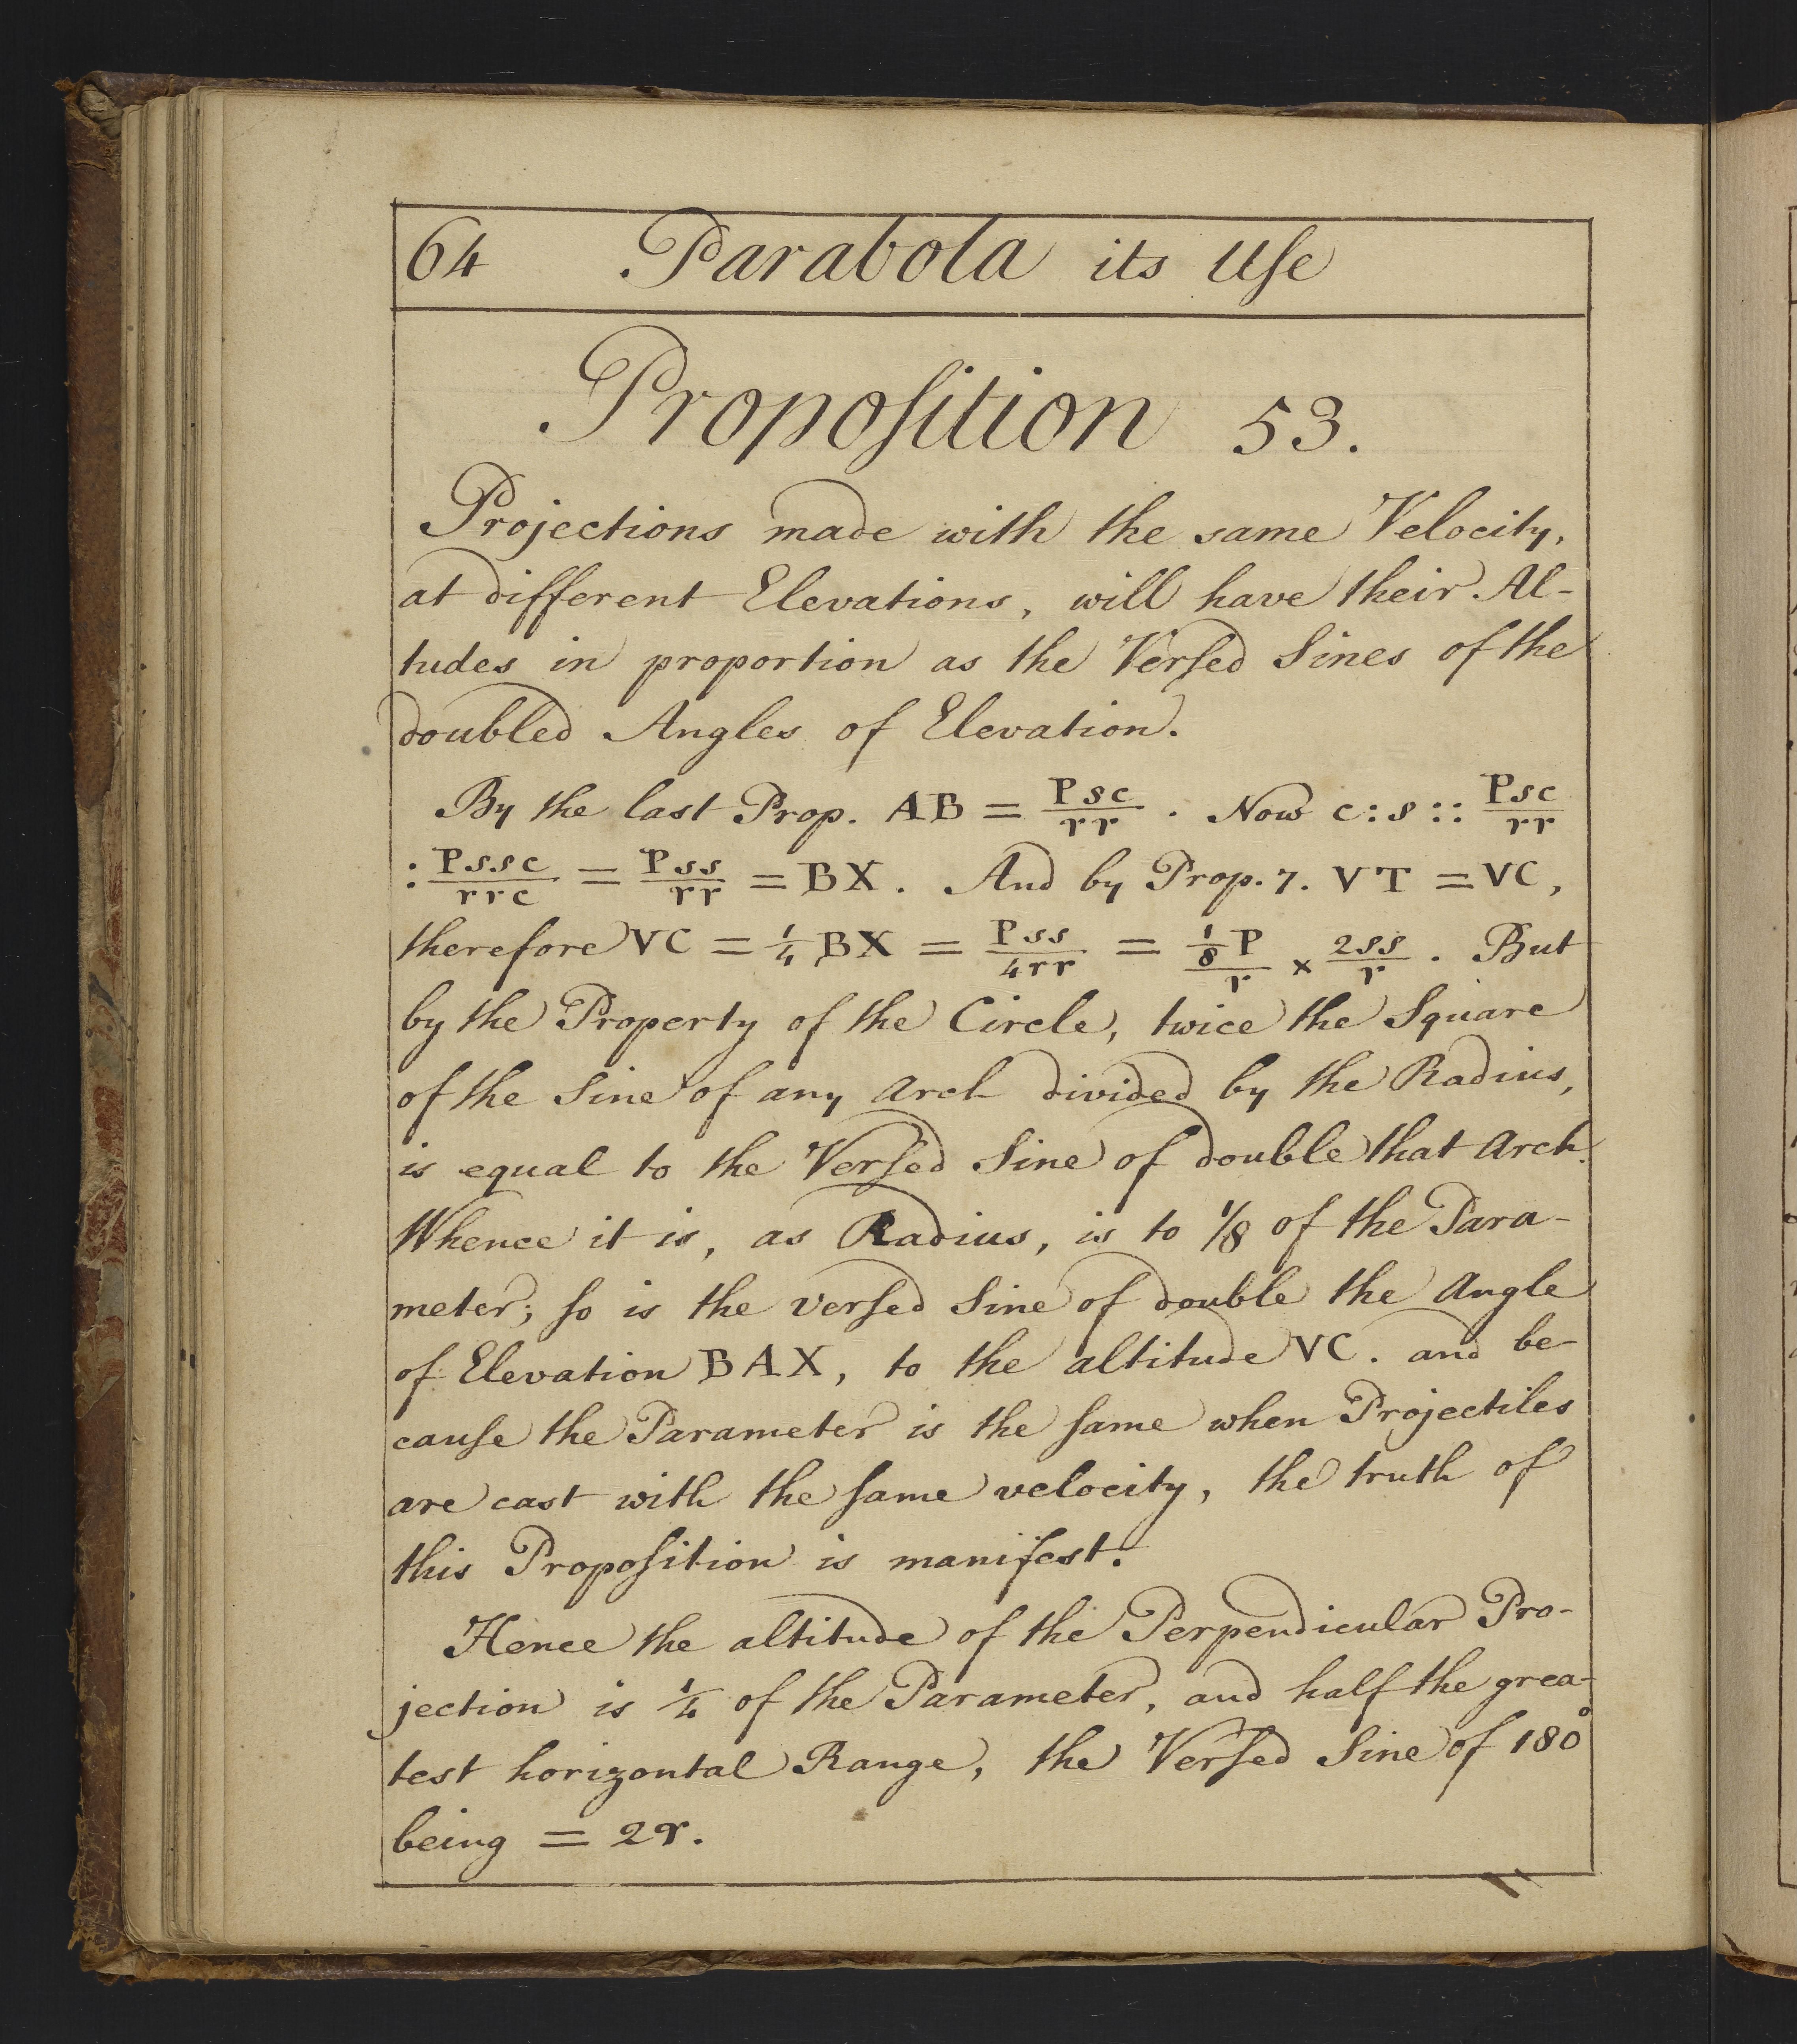 64 Parabola its Uſe
Propoſition 53.
Projections made with the same Velocity,
at different Elevations, will have their Al-
tudes in proportion as the Verſed Sines of the
doubled Angles of Elevation.
By the last Prop. AB = Psc/rr . Now c : s :: Psc/rr
: Pssc/rrc = Pss/rr = BX . And by Prop. 7. VT = VC,
therefore VC = 1/4 BX = Pss/4rr = 1/8 P/r × 2ss/r . But
by the Property of the Circle, twice the Square
of the Sine of any Arch divided by the Radius,
is equal to the Verſed Sine of double that Arch.
Whence it is, as Radius, is to 1/8 of the Para-
meter; ſo is the verſed Sine of double the Angle
of Elevation BAX, to the altitude VC. and be-
cauſe the Parameter is the ſame when Projectiles
are cast with the ſame velocity, the truth of
this Propoſition is manifest.
Hence the altitude of the Perpendicular Pro-
jection is 1/4 of the Parameter, and half the grea-
test horizontal Range, the Verſed Sine of 180°
being = 2r.